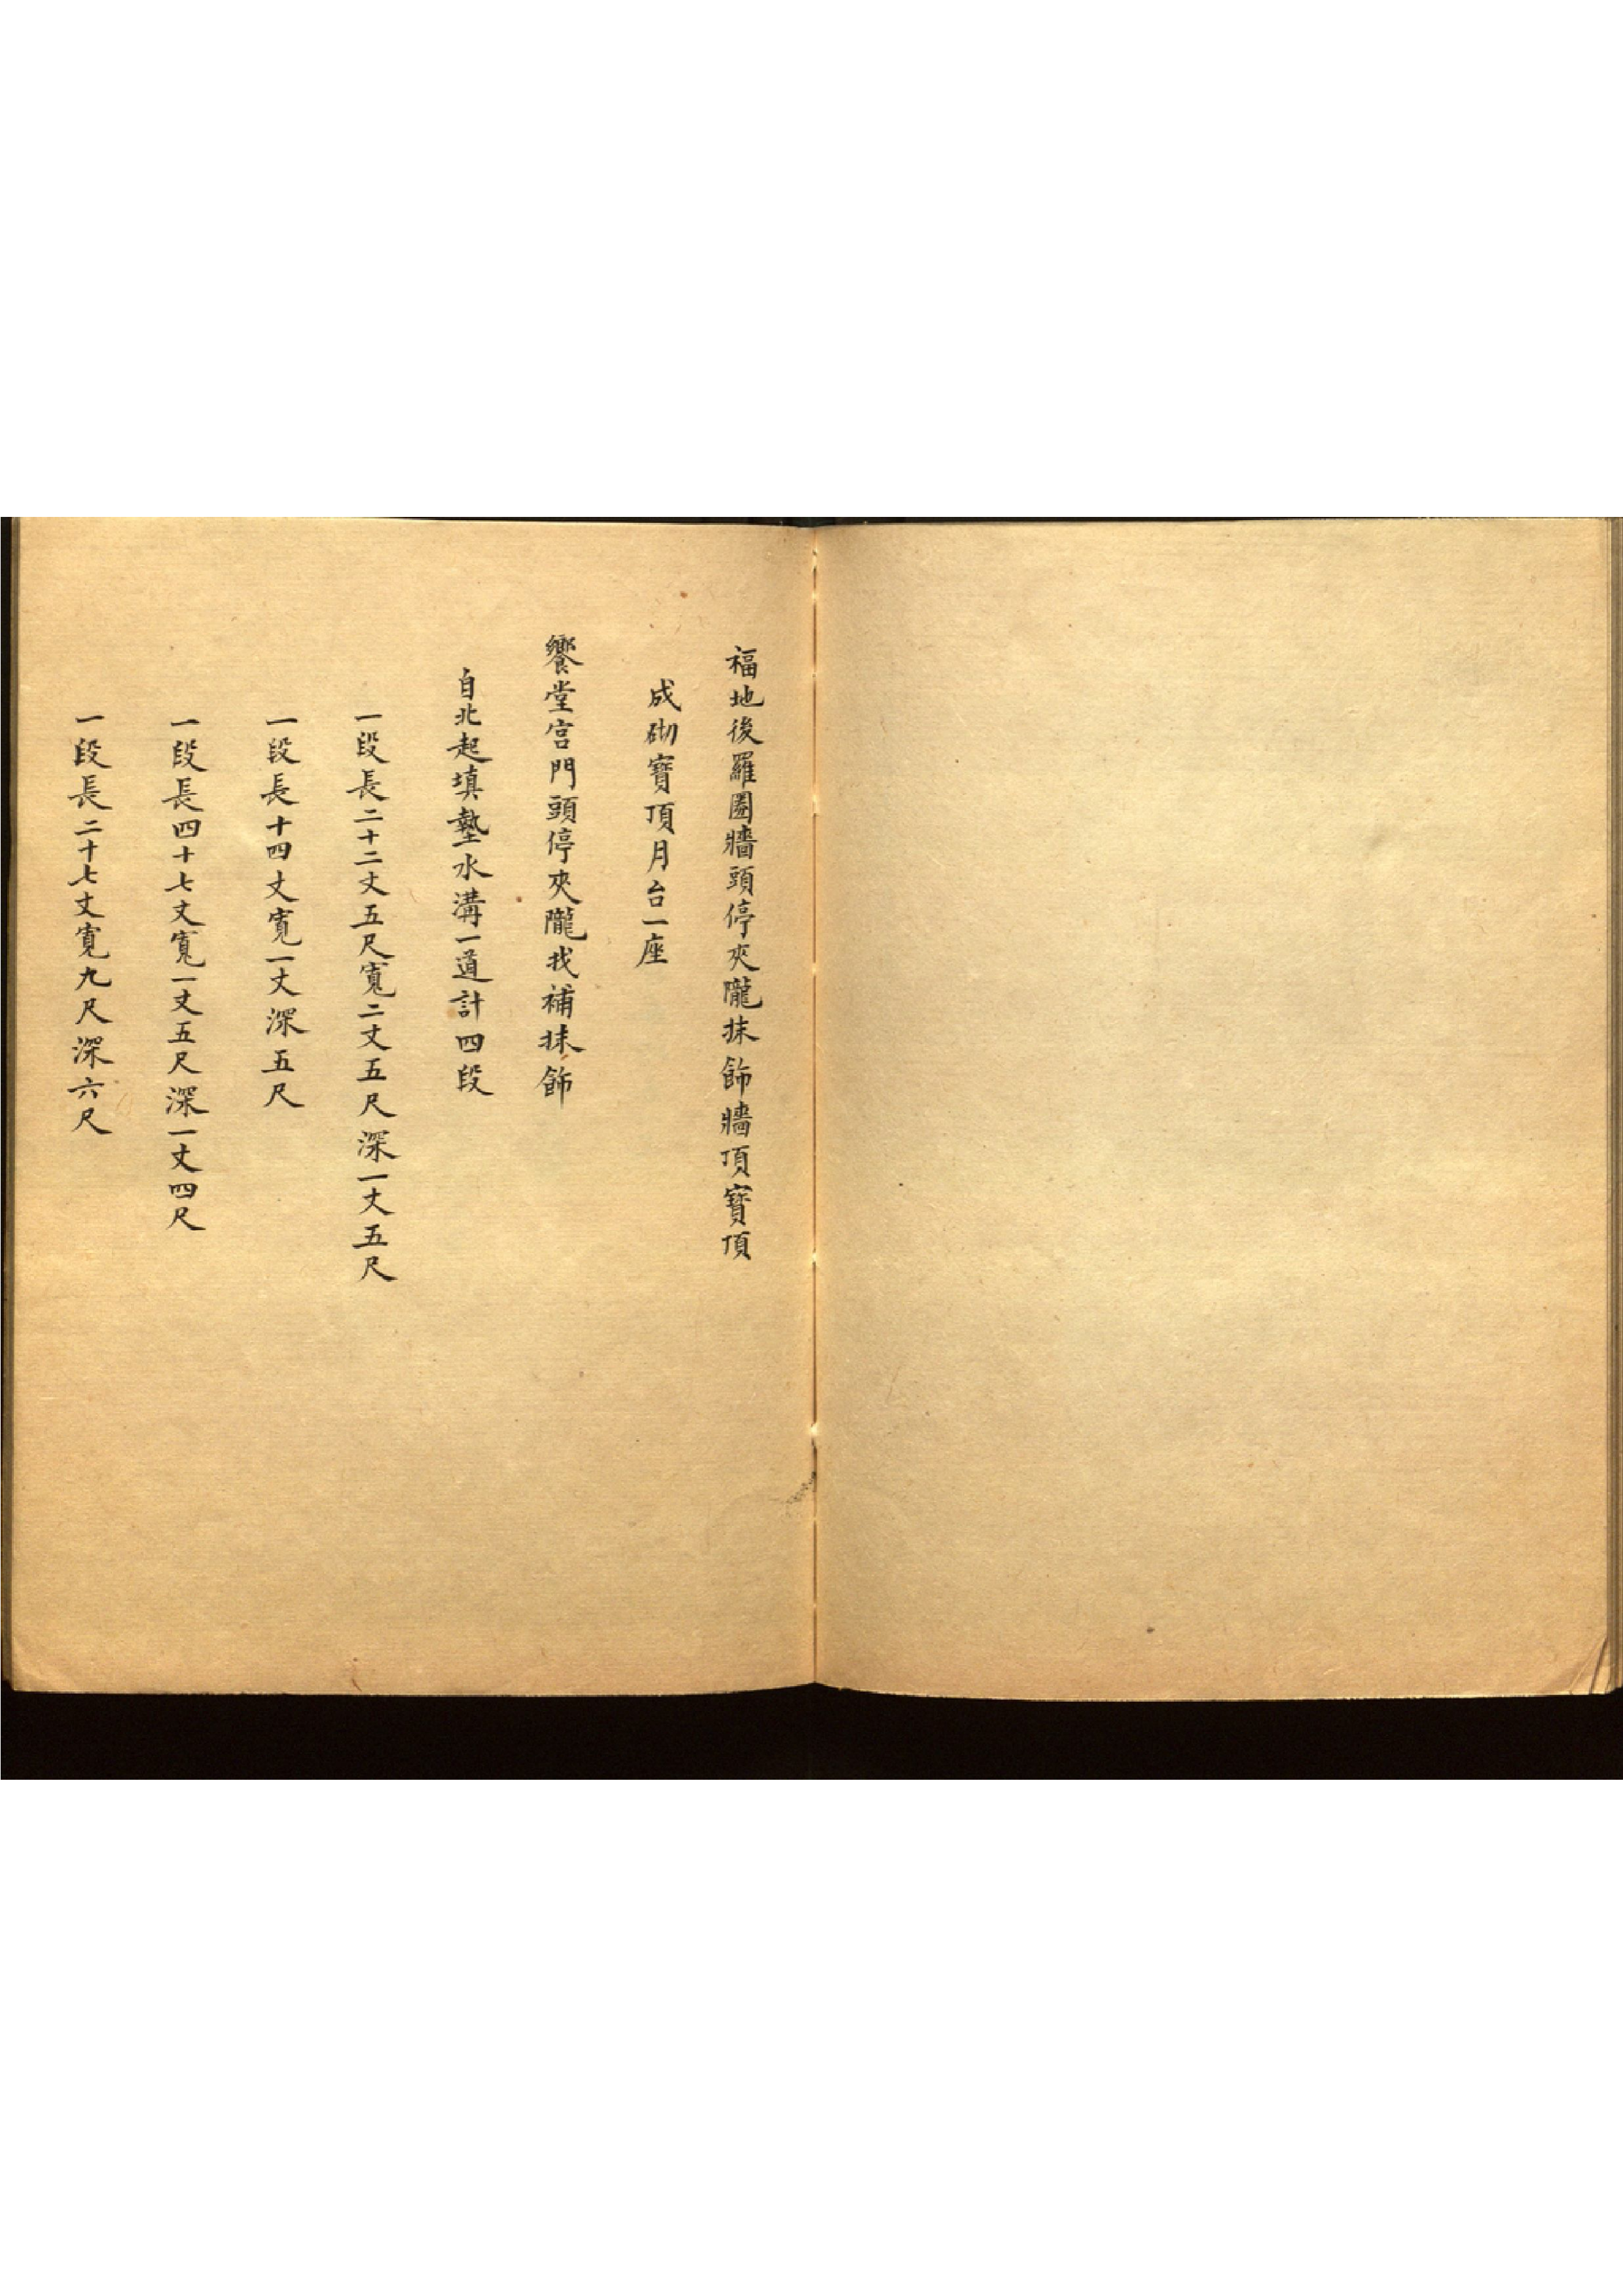 福地後羅圈牆頭停夾隴抹飾牆頂寶頂
成砌寶頂月台一座
饗堂宫門頭停夾隴找補抹飾
自北起填墊水溝一道計四段
一段長二十二丈五尺寬二丈五尺深一丈五尺
一段長十四丈寬一丈深五尺
一段長四十七丈寬一丈五尺深一丈四尺
一段長二十七丈寬九尺深六尺